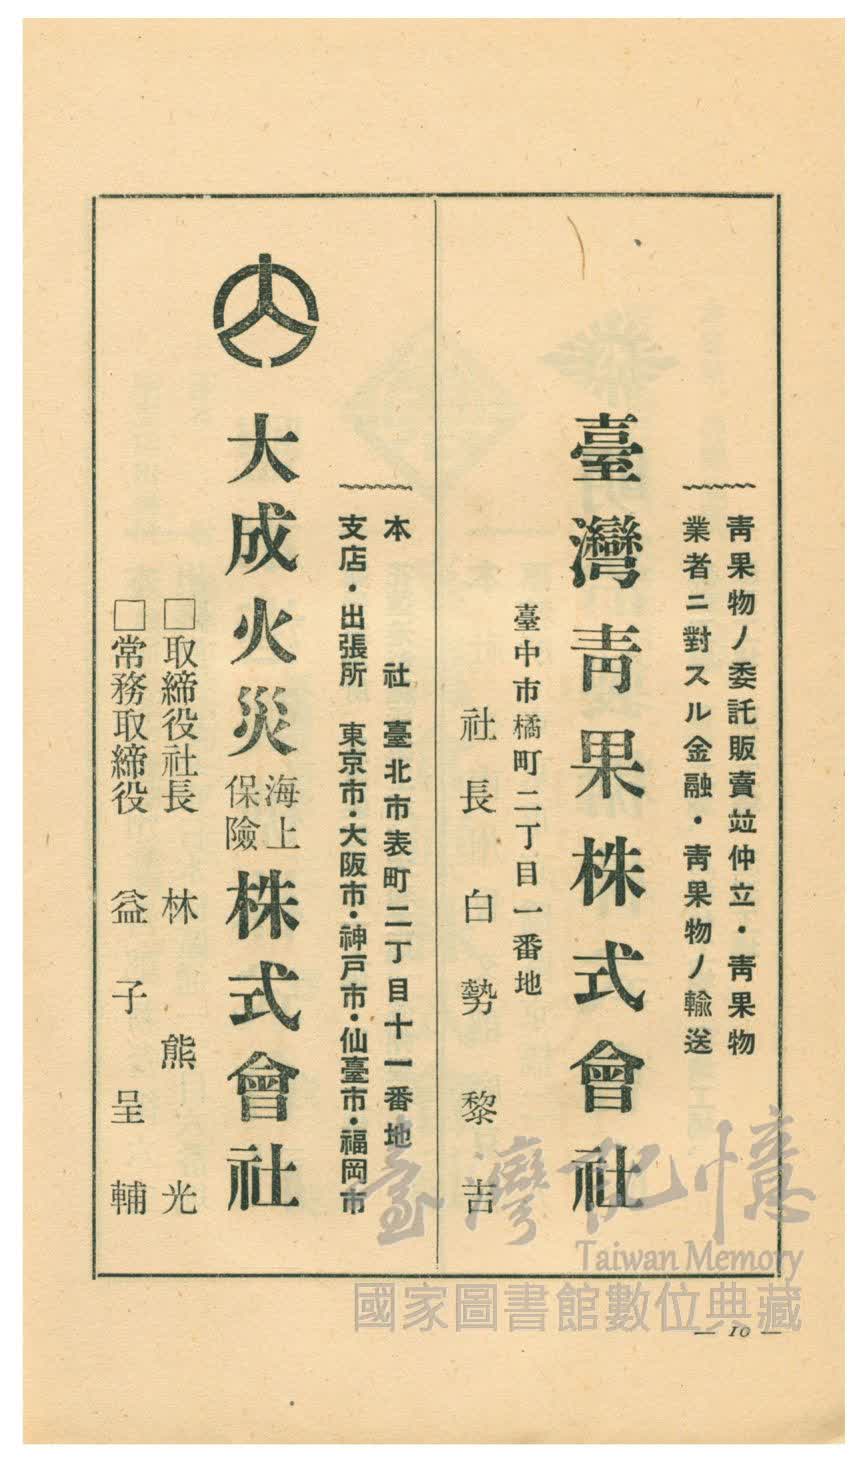 青果物ノ委託販賣竝仲立・青果物
業者ニ對スル金融・青果物ノ輸送
臺灣青果株式會社
臺中市橘町二丁目一番地
社長 白勢黎吉
本社 臺北市表町二丁目十一番地
支店・出張所 東京市・大阪市・神戸市・仙臺市・福岡市
大成火災海上保險株式會社
□取締役社長 林熊光
□常務取締役 益子呈輔
臺灣記憶
Taiwan Memory
國家圖書館數位典藏
— 10 —